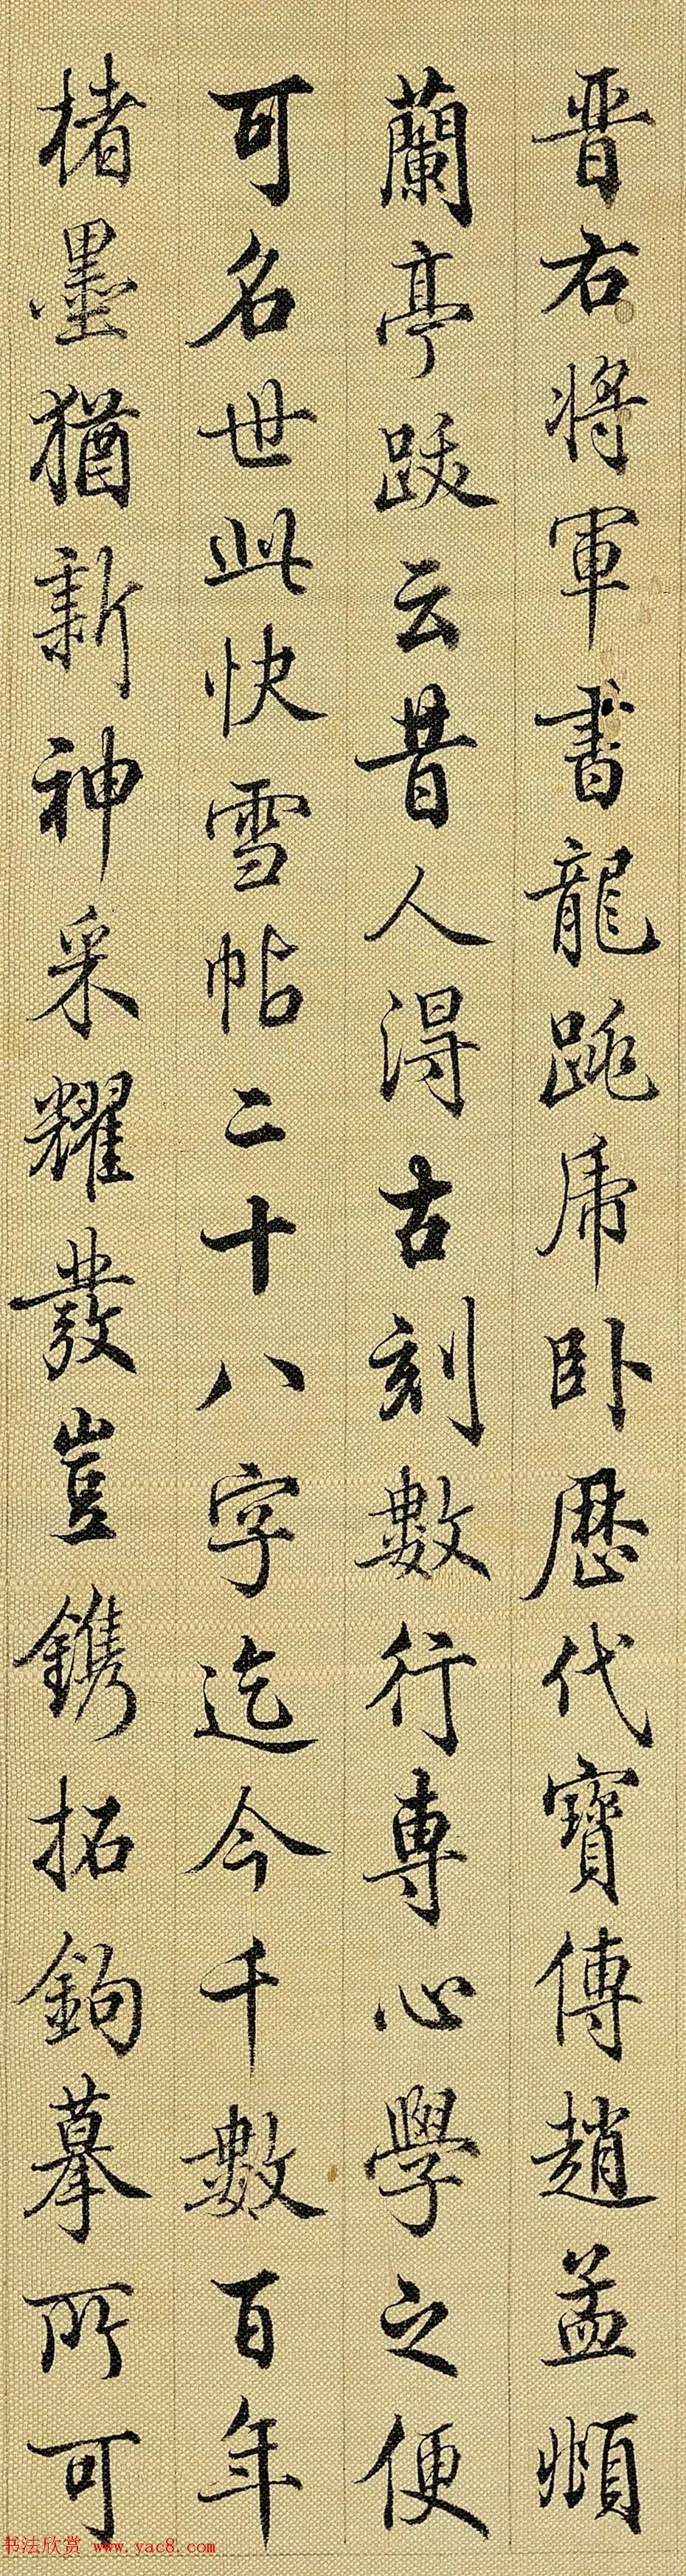 晋右将軍書龍跳虎卧歴代寶傳趙孟頫
蘭亭跋云昔人得古刻數行專心學之便
可名世此快雪帖二十八字迄今千數百年
楮墨猶新神采耀發豈鐫拓鉤摹所可
书法欣赏 www.yac8.com